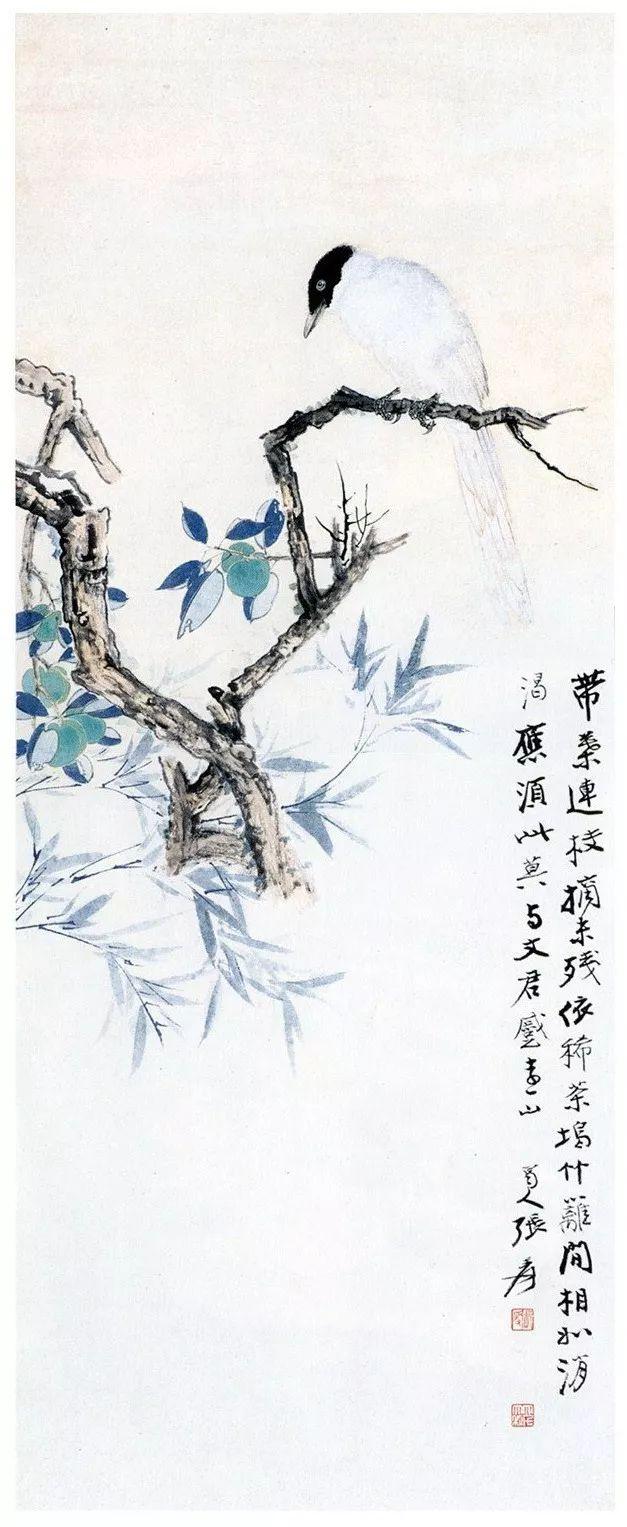 帶葉連枝摘未残依稀茶塢竹籬間相如消
渴應須此莫与文君蹙遠山 蜀人張爰